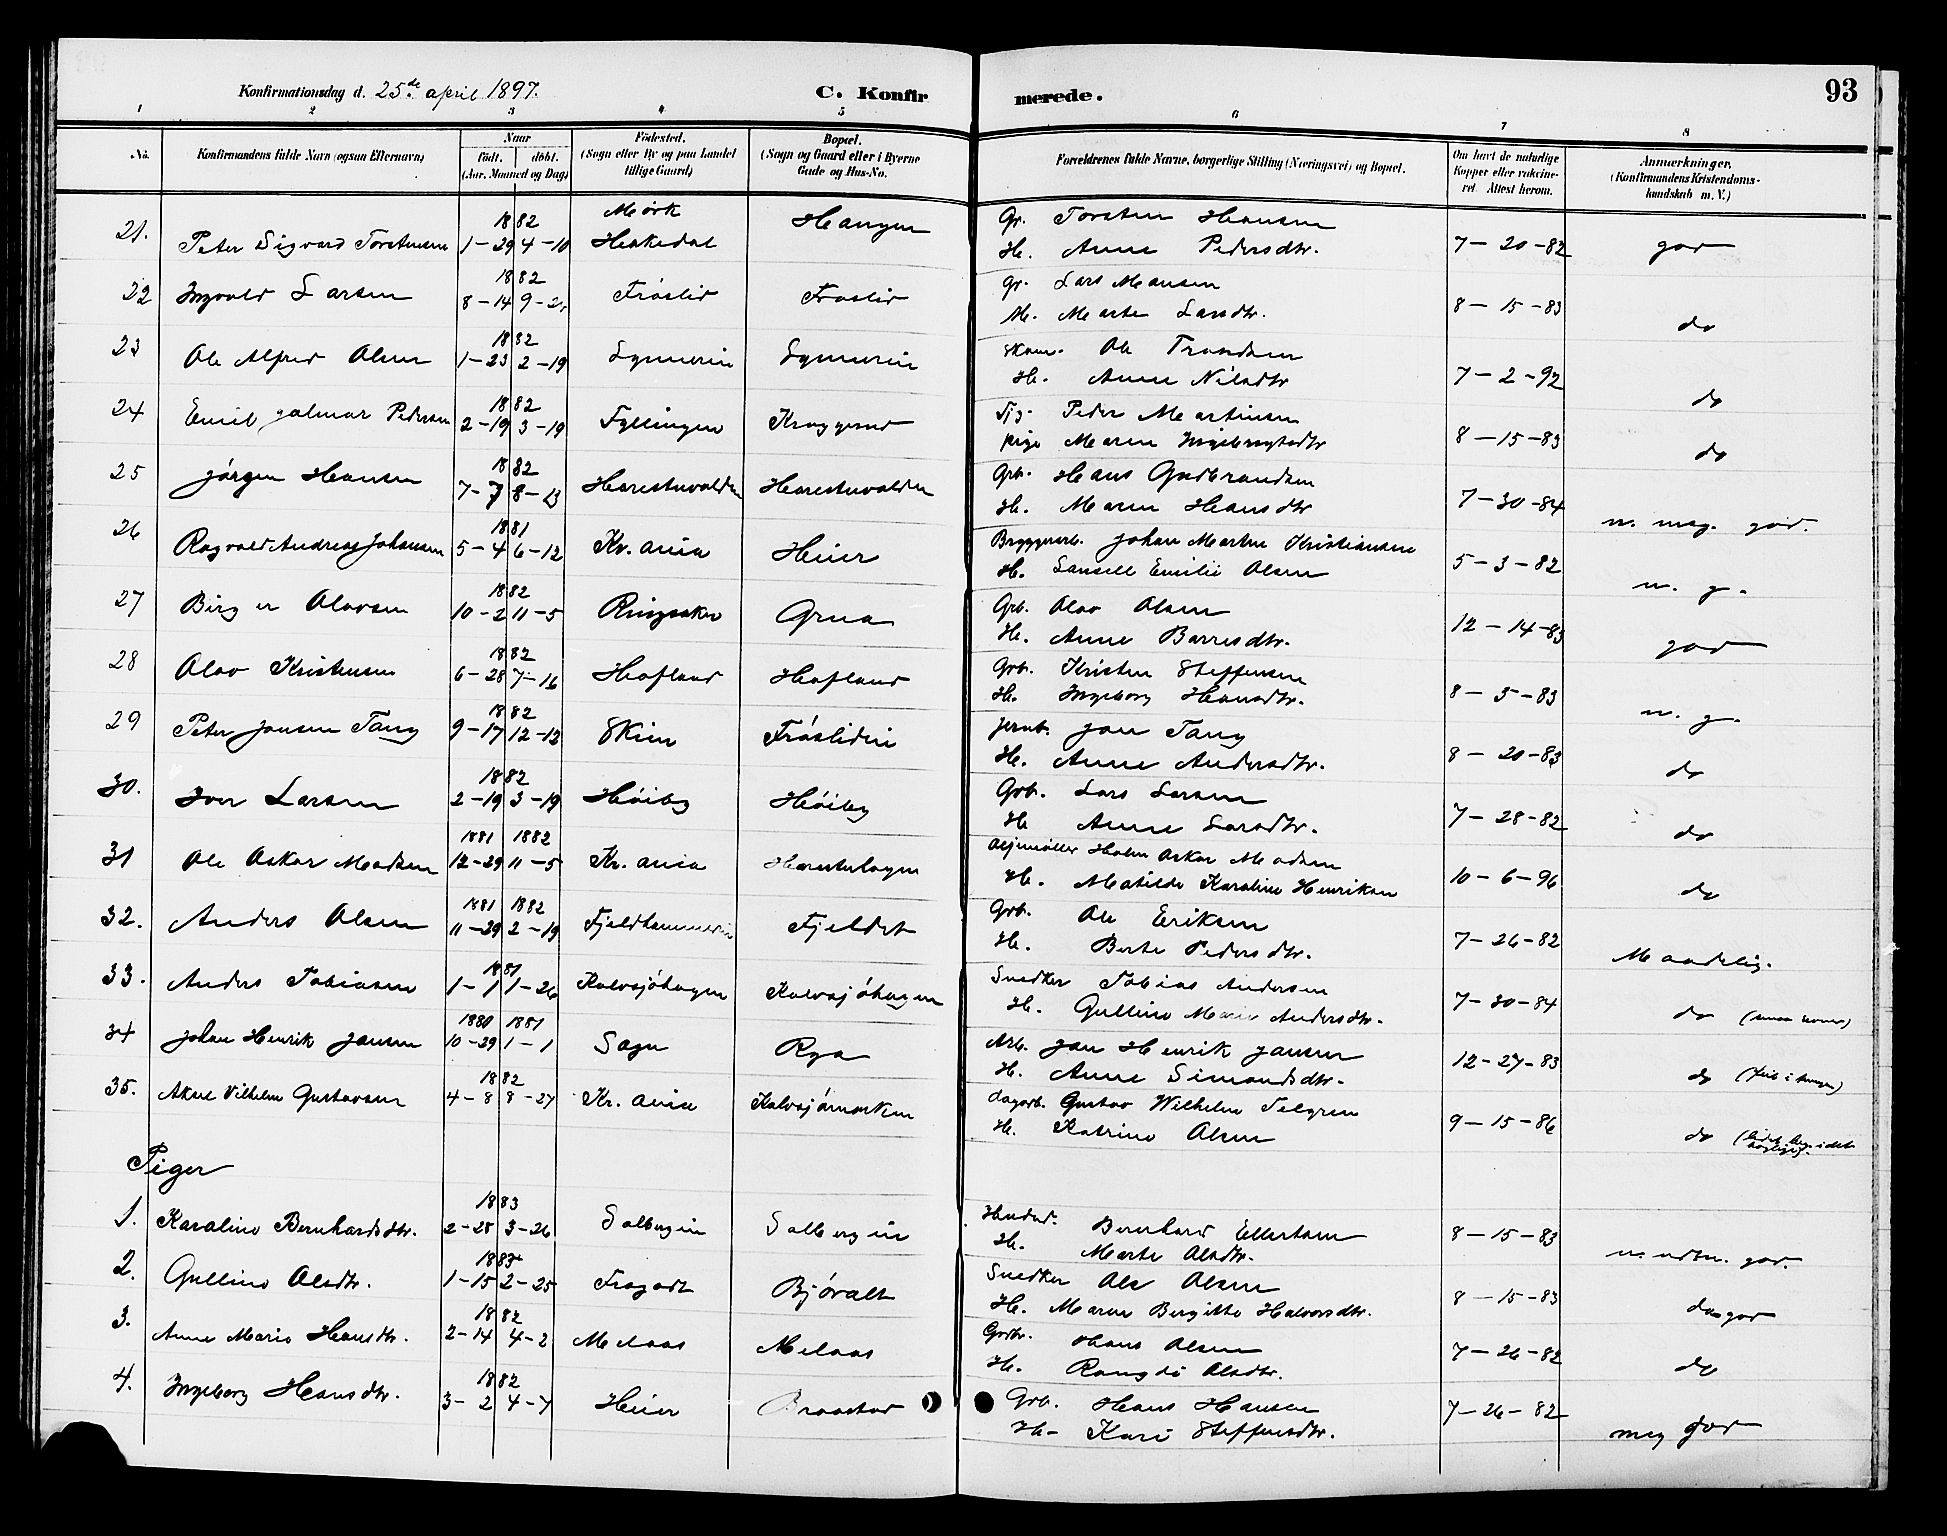 Konfirmationsdag d. 25de april 1897.
C. Konfirmerede.
93
1 2 3 4 5 6 7 8
No.
Konfirmandens fulde Navn (ogsaa Efternavn)
Naar
födt. döbt.
(Aar, Maaned og Dag)
Födested.
(Sogn eller By og paa Landet
tillige Gaard)
Bopæl.
(Sogn og Gaard eller i Byerne
Gade og Hus-No.
Forældrenes fulde Navne, borgerlige Stilling (Næringsvei) og Bopæl.
Om havt de naturlige
Kopper eller vakcine-
ret. Attest herom.
Anmærkninger.
(Konfirmandens Kristendoms-
kundskab m. V.)
21. Peter Sigvard Torstensen 1882 1-29 4-10 Mörk Hakedal Haugen Gr. Torsten Hansen 7-20-82 god
H. Anne Pedersdtr.
22 Ingvald Larsen 1882 8-14 9- Fröslid Fröslid Gr. Lars Hansen 8-15-83 do
H. Marte Larsdtr.
23 Ole Alfred Olsen 1882 1-23 2-19 Ole Trondsen 7-2-92 do
H. Anne Nilsdtr
24 Emil Hjalmar Pedersen 1882 2-19 3-19 Fyllingen Kraggerud Tjg. Peder Martinsen 8-15-83 do
pige Maren Ingebregtsdtr
25 Jörgen Hansen 1882 7-7 8-13 Harestuvolden Harestuvolden Grb. Hans Gudbrandsen 7-30-84 n. meg. god.
H. Maren Hansdtr
26 Ragvald Andreas Johansen 1881 5-4 6-12 Kr.ania Heier Bryggeriarb. Johan Martin Kristiansen 5-3-82 n. g.
H. Emilie Olsen
27 Birger Olavsen 1882 10-2 11-5 Ringsaker Grua Grb. Olav Olsen 12-14-83 god
H. Anne Barresdtr.
28 Olav Kristensen 1882 6-28 7-16 Hafland Hafland Grb. Kristen Steffensen 8-3-83 n. g.
H. Ingeborg Hansdtr.
29 Peter Jansen Tang 1882 9-17 12-12 Skien Fröslidin Jernb. Jan Tang 8-20-83 do
H. Anne Andersdtr.
30. Iver Larsen 1882 2-19 3-19 Höiby Höiby Grb. Lars Larsen 7-28-82 do
H Anne Larsdtr.
31 Ole Oskar Madsen 1881 12-29 1882 11-5 Kr.ania Harestuhagen Holm Oskar Madsen 10-6-96 do
H. Matilde Karoline Henriksen
32. Anders Olsen 1881 11-29 1882 2-19 Fjeldhammeren Fjeldet Grb. Ole Eriksen 7-26-82 Maadelig.
H. Berte Pedersdtr.
33. Anders Tobiasen 1881 1-1 1-26 Kalvsjöhagen Kalvsjöhagen Snedker Tobias Andersen 7-30-84 do
H. Gulline Marie Andersdtr.
34 Johan Henrik Jansen 1880 10-29 1881 1-1 Sogn Rya Arb. Jan Henrik Jansen 12-27-83 do
H. Anne Simensdtr.
35. Aksel Vilhelm Gustavsen 1882 4-8 8-27 Kr.ania Kalvsjömarken dagarb. Gustav Wilhelm Telgren 9-15-86 do
H. Katrine Olsen
Piger
1. Karoline Bernhardsdtr. 1883 2-25 3-26 Solbergin Solbergin Husbd. Bernhard Ellertsen 8-15-83 n. udm. god.
H. Marte Olsdtr.
2. Gulline Olsdtr. 1883 1-15 2-25 Fragodt Björalt Snedker Ole Olsen 8-15-83 god
H. Maren Bergitte Halvorsdtr.
3. Anne Marie Hansdtr. 1882 2-14 4-2 Melaas Melaas Grb. Hans Olsen 7-26-82 do
H. Olsdtr.
4. Ingeborg Hansdtr. 1882 3-2 4-7 Heier Braastad Grb. Hans Hansen 7-26-82 meg god
H- Kari Steffensdtr.